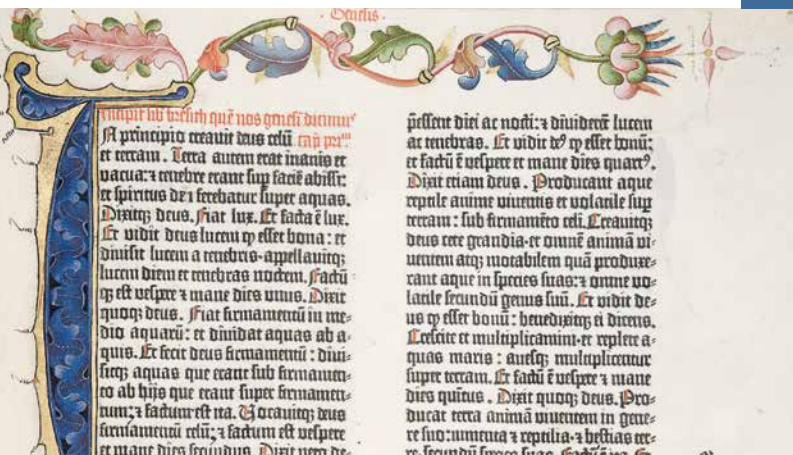 · Genesis ·
Incipit lib bresith quē nos genesī dicimus
IN principio creavit deus celū cap̄ prī
et terram. Terra autem erat inanis et
vacua: ⁊ tenebre erant sup faciē abissi:
et spiritus dei ferebatur super aquas.
Dixitqȝ deus. Fiat lux. Et facta ē lux.
Et vidit deus lucem ꝙ esset bona: et
divisit lucem a tenebris-appellavitqȝ
lucem diem et tenebras noctem. Factū-
qȝ est vespere ⁊ mane dies unus. Dixit
quoqȝ deus. Fiat firmamentū in me-
dio aquarū: et dividat aquas ab a-
quis. Et fecit deus firmamentū: divi-
sitqȝ aquas que erant sub firmamen-
to ab hijs que erant super firmamen-
tum: ⁊ factum est ita. Vocavitqȝ deus
firmamentū celū: ⁊ factum est vespere
et mane dies secundus. Dixit vero de-
pessent diei ac nocti: ⁊ dividerēt lucem
ac tenebras. Et vidit deꝰ ꝙ esset bonū:
et factū ē vespere et mane dies quartꝰ.
Dixit etiam deus. Producant aque
reptile anime viventis et volatile sup
terram: sub firmamēto celi. Creavitqȝ
deus cete grandia-et omnē animā vi-
ventem atqȝ motabilem quā produxe-
rant aque in species suas: ⁊ omne vo-
latile secundū genus suū. Et vidit de-
us ꝙ esset bonū: benedixitqȝ ei dicens.
Crescite et multiplicamini-et replete a-
quas maris: avesqȝ multiplicentur
super terram. Et factū ē vespere ⁊ mane
dies quītus. Dixit quoqȝ deus. Pro-
ducat terra animā viventem in gene-
re suo: iumenta ⁊ reptilia-⁊ bestias ter-
re-secundū species suas. Factū ē ita. Et